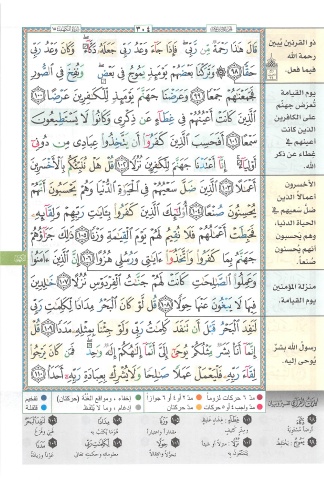 ٣٠٤
قَالَ هَٰذَا رَحْمَةٌ مِّن رَّبِّي فَإِذَا جَآءَ وَعْدُ رَبِّي جَعَلَهُۥ دَكَّآءَ وَكَانَ وَعْدُ رَبِّي
حَقًّا ٩٨ وَتَرَكْنَا بَعْضَهُمْ يَوْمَئِذٍ يَمُوجُ فِي بَعْضٍ وَنُفِخَ فِي ٱلصُّورِ
فَجَمَعْنَٰهُمْ جَمْعًا ٩٩ وَعَرَضْنَا جَهَنَّمَ يَوْمَئِذٍ لِّلْكَٰفِرِينَ عَرْضًا ١٠٠
ٱلَّذِينَ كَانَتْ أَعْيُنُهُمْ فِي غِطَآءٍ عَن ذِكْرِي وَكَانُوا۟ لَا يَسْتَطِيعُونَ
سَمْعًا ١٠١ أَفَحَسِبَ ٱلَّذِينَ كَفَرُوٓا۟ أَن يَتَّخِذُوا۟ عِبَادِي مِن دُونِيٓ
أَوْلِيَآءَ إِنَّآ أَعْتَدْنَا جَهَنَّمَ لِلْكَٰفِرِينَ نُزُلًا ١٠٢ قُلْ هَلْ نُنَبِّئُكُم بِٱلْأَخْسَرِينَ
أَعْمَٰلًا ١٠٣ ٱلَّذِينَ ضَلَّ سَعْيُهُمْ فِي ٱلْحَيَوٰةِ ٱلدُّنْيَا وَهُمْ يَحْسَبُونَ أَنَّهُمْ
يُحْسِنُونَ صُنْعًا ١٠٤ أُو۟لَٰٓئِكَ ٱلَّذِينَ كَفَرُوا۟ بِـَٔايَٰتِ رَبِّهِمْ وَلِقَآئِهِۦ
فَحَبِطَتْ أَعْمَٰلُهُمْ فَلَا نُقِيمُ لَهُمْ يَوْمَ ٱلْقِيَٰمَةِ وَزْنًا ١٠٥ ذَٰلِكَ جَزَآؤُهُمْ
جَهَنَّمُ بِمَا كَفَرُوا۟ وَٱتَّخَذُوٓا۟ ءَايَٰتِي وَرُسُلِي هُزُوًا ١٠٦ إِنَّ ٱلَّذِينَ ءَامَنُوا۟
وَعَمِلُوا۟ ٱلصَّٰلِحَٰتِ كَانَتْ لَهُمْ جَنَّٰتُ ٱلْفِرْدَوْسِ نُزُلًا ١٠٧ خَٰلِدِينَ
فِيهَا لَا يَبْغُونَ عَنْهَا حِوَلًا ١٠٨ قُل لَّوْ كَانَ ٱلْبَحْرُ مِدَادًا لِّكَلِمَٰتِ رَبِّي
لَنَفِدَ ٱلْبَحْرُ قَبْلَ أَن تَنفَدَ كَلِمَٰتُ رَبِّي وَلَوْ جِئْنَا بِمِثْلِهِۦ مَدَدًا ١٠٩ قُلْ
إِنَّمَآ أَنَا۠ بَشَرٌ مِّثْلُكُمْ يُوحَىٰٓ إِلَيَّ أَنَّمَآ إِلَٰهُكُمْ إِلَٰهٌ وَٰحِدٌ فَمَن كَانَ يَرْجُوا۟
لِقَآءَ رَبِّهِۦ فَلْيَعْمَلْ عَمَلًا صَٰلِحًا وَلَا يُشْرِكْ بِعِبَادَةِ رَبِّهِۦٓ أَحَدًۢا ١١٠
ذو القرنين يُبين
رحمة الله
فيما فعل.
يوم القيامة
تُعرض جهنّم
على الكافرين
الذين كانت
أعينهم في
غطاء عن ذكر
الله.
الأخسرون
أعمالاً الذين
ضلّ سعيهم في
الحياة الدنيا،
وهم يحسبون
أنهم يحسنون
صنعاً.
منزلة المؤمنين
يوم القيامة.
رسول الله بشرٌ
يُوحى إليه.